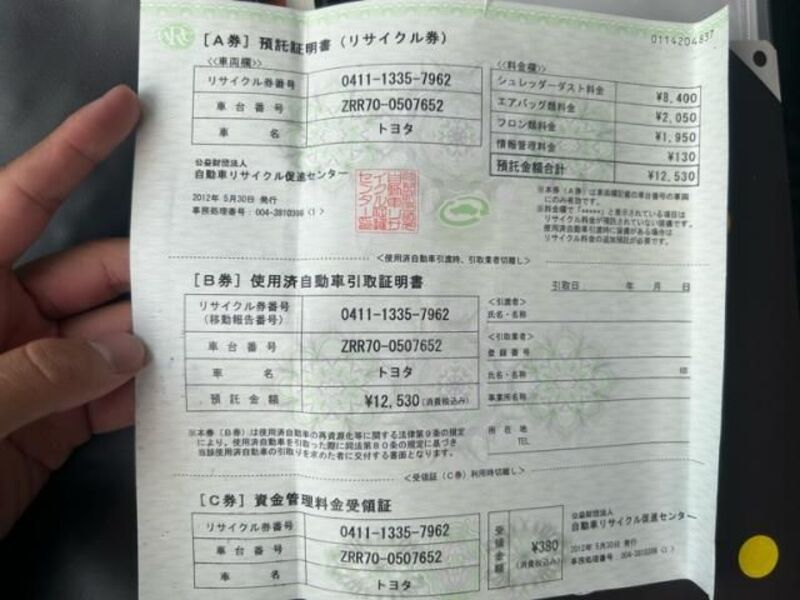 0114204837
[A券] 預託証明書(リサイクル券)
<<車両欄>>
リサイクル券番号 0411-1335-7962
車台番号 ZRR70-0507652
車名 トヨタ
<<料金欄>>
シュレッダーダスト料金 ¥8,400
エアバッグ類料金 ¥2,050
フロン類料金 ¥1,950
情報管理料金 ¥130
預託金額合計 ¥12,530
公益財団法人
自動車リサイクル促進センター
2012年 5月30日 発行
事務処理番号:004-3810398 (1)
※本券(A券)は車両欄記載の車台番号の車両
にのみ有効です。
※料金欄で「*****」と表示されている項目は
リサイクル料金が預託されていない装備です。
使用済自動車引渡時に装備がある場合は
リサイクル料金の追加預託が必要です。
<使用済自動車引渡時、引取業者切離し>
[B券] 使用済自動車引取証明書
引取日 年 月 日
リサイクル券番号
(移動報告番号) 0411-1335-7962
車台番号 ZRR70-0507652
車名 トヨタ
預託金額 ¥12,530 (消費税込み)
<引渡者>
氏名・名称
<引取業者>
登録番号
氏名・名称 印
事業所名称
所在地
TEL
※本券(B券)は使用済自動車の再資源化等に関する法律第9条の規定
により、使用済自動車を引取った際に同法第80条の規定に基づき
当該使用済自動車の引取りを求めた者に交付する書面となります。
<受領証(C券)利用時切離し>
[C券] 資金管理料金受領証
リサイクル券番号 0411-1335-7962
車台番号 ZRR70-0507652
車名 トヨタ
受領金額 ¥380
(消費税込み)
公益財団法人
自動車リサイクル促進センター
2012年 5月30日 発行
事務処理番号:004-3810398 (1)